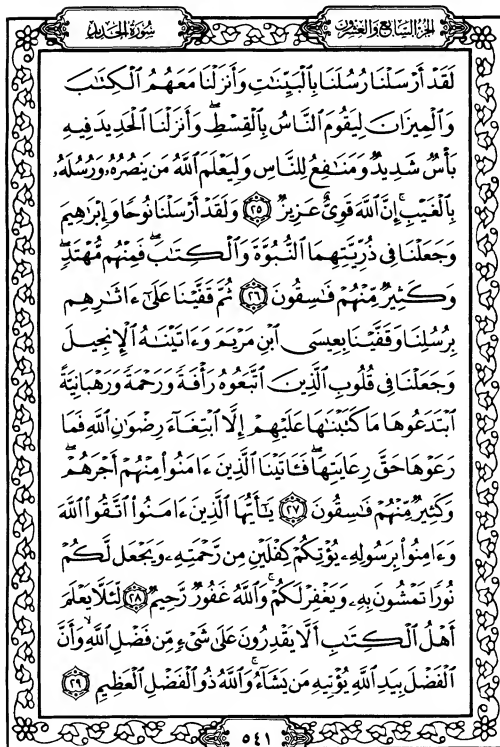 الجزء السابع والعشرون
سورة الحديد
لَقَدْ أَرْسَلْنَا رُسُلَنَا بِالْبَيِّنَاتِ وَأَنزَلْنَا مَعَهُمُ الْكِتَابَ
وَالْمِيزَانَ لِيَقُومَ النَّاسُ بِالْقِسْطِ ۖ وَأَنزَلْنَا الْحَدِيدَ فِيهِ
بَأْسٌ شَدِيدٌ وَمَنَافِعُ لِلنَّاسِ وَلِيَعْلَمَ اللَّهُ مَن يَنصُرُهُ وَرُسُلَهُ
بِالْغَيْبِ ۚ إِنَّ اللَّهَ قَوِيٌّ عَزِيزٌ ٢٥ وَلَقَدْ أَرْسَلْنَا نُوحًا وَإِبْرَاهِيمَ
وَجَعَلْنَا فِي ذُرِّيَّتِهِمَا النُّبُوَّةَ وَالْكِتَابَ ۖ فَمِنْهُم مُّهْتَدٍ ۖ
وَكَثِيرٌ مِّنْهُمْ فَاسِقُونَ ٢٦ ثُمَّ قَفَّيْنَا عَلَىٰ ءَاثَارِهِم
بِرُسُلِنَا وَقَفَّيْنَا بِعِيسَى ابْنِ مَرْيَمَ وَءَاتَيْنَاهُ الْإِنجِيلَ
وَجَعَلْنَا فِي قُلُوبِ الَّذِينَ اتَّبَعُوهُ رَأْفَةً وَرَحْمَةً وَرَهْبَانِيَّةً
ابْتَدَعُوهَا مَا كَتَبْنَاهَا عَلَيْهِمْ إِلَّا ابْتِغَاءَ رِضْوَانِ اللَّهِ فَمَا
رَعَوْهَا حَقَّ رِعَايَتِهَا ۖ فَـَٔاتَيْنَا الَّذِينَ ءَامَنُوا مِنْهُمْ أَجْرَهُمْ ۖ
وَكَثِيرٌ مِّنْهُمْ فَاسِقُونَ ٢٧ يَا أَيُّهَا الَّذِينَ ءَامَنُوا اتَّقُوا اللَّهَ
وَءَامِنُوا بِرَسُولِهِ يُؤْتِكُمْ كِفْلَيْنِ مِن رَّحْمَتِهِ وَيَجْعَل لَّكُمْ
نُورًا تَمْشُونَ بِهِ وَيَغْفِرْ لَكُمْ ۚ وَاللَّهُ غَفُورٌ رَّحِيمٌ ٢٨ لِّئَلَّا يَعْلَمَ
أَهْلُ الْكِتَابِ أَلَّا يَقْدِرُونَ عَلَىٰ شَيْءٍ مِّن فَضْلِ اللَّهِ ۙ وَأَنَّ
الْفَضْلَ بِيَدِ اللَّهِ يُؤْتِيهِ مَن يَشَاءُ ۚ وَاللَّهُ ذُو الْفَضْلِ الْعَظِيمِ ٢٩
٥٤١